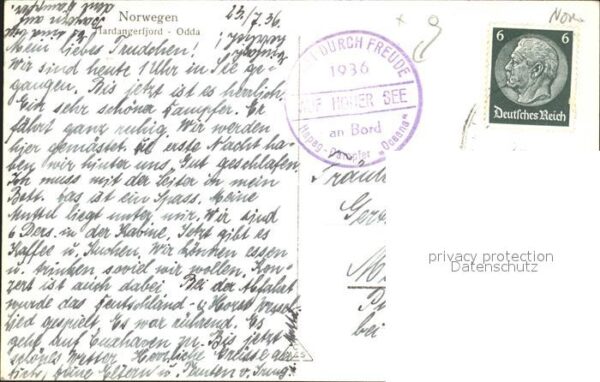 Norwegen
Hardangerfjord - Odda
23./7.36
Mein liebes Trudchen!
Wir sind heute 1 Uhr in See ge-
gangen. Bis jetzt ist es herrlich
Ein sehr schöner Dampfer. Er
fährt ganz ruhig. Wir werden
hier gemästet. erste Nacht ha-
ben wir hinter uns. Gut geschlafen.
Ich muss mit der Leiter in mein
Bett. Das ist ein Spass. Meine
Mutti liegt unter mir. Wir sind
6 Pers. in der Kabine. Jetzt gibt es
Kaffee u. Kuchen. Wir können essen
u. trinken soviel wir wollen. Kon-
zert ist auch dabei. Bei der Abfahrt
wurde das Deutschland - u. Horst Wessel-
lied gespielt. Es war rührend. Es
geht auf Cuxhaven zu. Bis jetzt
schönes Wetter. Herzliche Grüsse
Deine Eltern u. Tanten
KRAFT DURCH FREUDE
1936
AUF HOHER SEE
an Bord
Hapag-Dampfer "Oceana"
Nor.
6 6
Deutsches Reich
privacy protection
Datenschutz